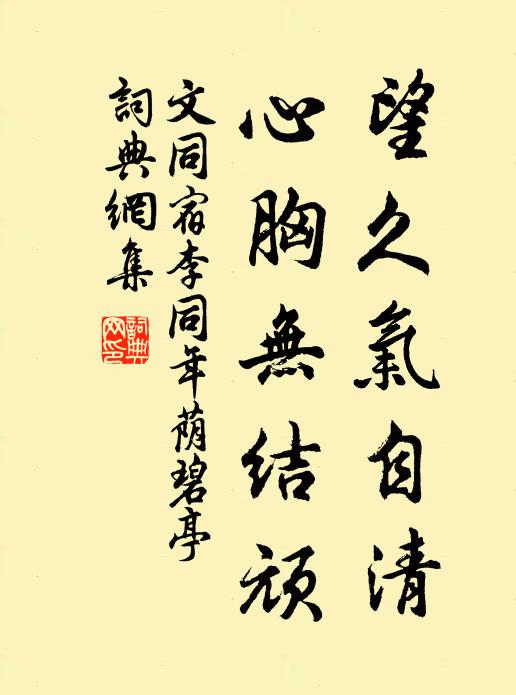 望久氣自清
心胸無结頑
文同宿李同年荫碧亭
詞典網集
詞典網印